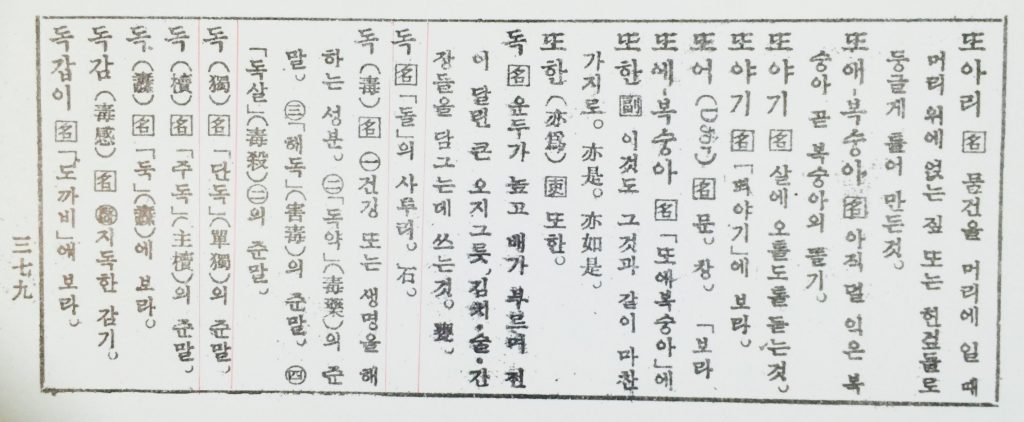 또아리 名 물건을 머리에 일 때
머리 위에 얹는 짚 또는 헌겊들로
둥글게 틀어 만든것。
또애-복숭아 名 아직 덜 익은 복
숭아 곧 복숭아의 똘기。
또야기 名 살에 오톨도톨 돋는것。
또야기 名 「뙈야기」에 보라。
또어 (Door) 名 문。창。 「보라
또세-복숭아 名 「또애복숭아」에
또한 副 이것도 그것과 같이 마찬
가지로。亦是。亦如是。
또한(亦爲) 吏 또한。
독 名 운두가 높고 배가 부르며 전
이 달린 큰 오지그릇,김치·술·간
장들을 담그는데 쓰는것。甕。
독 名 「돌」의 사투리。石。
독(毒) 名 ㊀건강 또는 생명을 해
하는 성분。㊁「독약」(毒藥)의 준
말。㊂「해독」(害毒)의 준말。㊃
「독살」(毒殺)㊁의 준말。
독(獨) 名 「단독」(單獨)의 준말。
독(櫝) 名 「주독」(主櫝)의 준말。
독(纛) 名 「둑」(纛)에 보라。
독감(毒感) 名 지독한 감기。
독갑이 名 「도까비」에 보라。
三七九